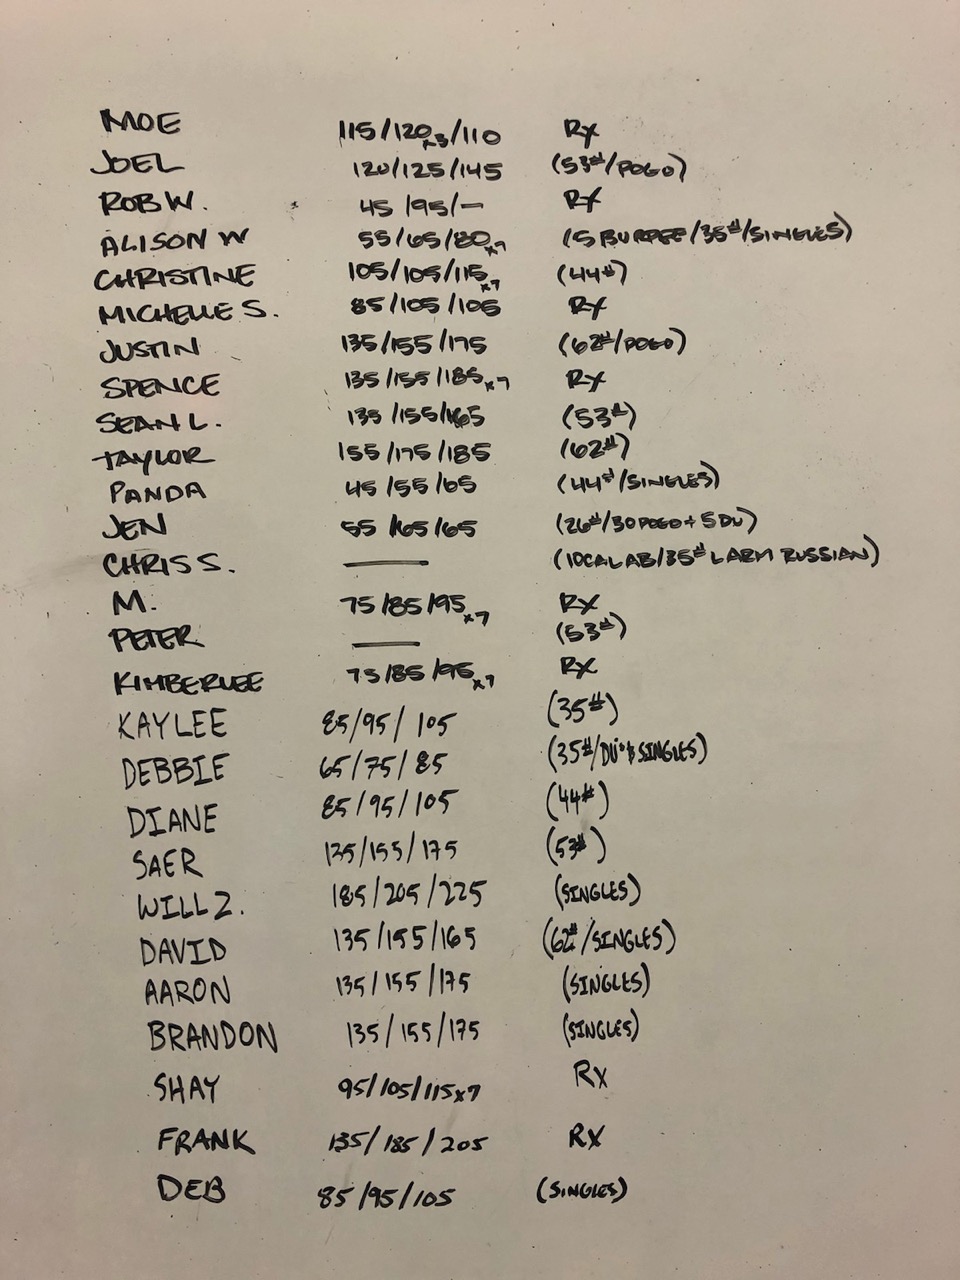 MOE 115/120x3/110 Rx
JOEL 120/125/145 (53#/POGO)
ROB W. 45/95/— Rx
ALISON W 55/65/80x7 (5 BURPEE/35#/SINGLES)
CHRISTINE 105/105/115x7 (44#)
MICHELLE S. 85/105/105 Rx
JUSTIN 135/155/175 (62#/POGO)
SPENCE 135/155/185x7 Rx
SEAN L. 135/155/165 (53#)
TAYLOR 155/175/185 (62#)
PANDA 45/55/65 (44#/SINGLES)
JEN 55/65/65 (26#/30 POGO + 5 DU)
CHRIS S. — (10CAL AB/35# L ARM RUSSIAN)
M. 75/85/95x7 Rx
PETER — (53#)
KIMBERLEE 75/85/95x7 Rx
KAYLEE 85/95/105 (35#)
DEBBIE 65/75/85 (35#/DU's & SINGLES)
DIANE 85/95/105 (44#)
SAER 135/155/175 (53#)
WILL Z. 185/205/225 (SINGLES)
DAVID 135/155/165 (62#/SINGLES)
AARON 135/155/175 (SINGLES)
BRANDON 135/155/175 (SINGLES)
SHAY 95/105/115x7 Rx
FRANK 135/185/205 RX
DEB 85/95/105 (SINGLES)